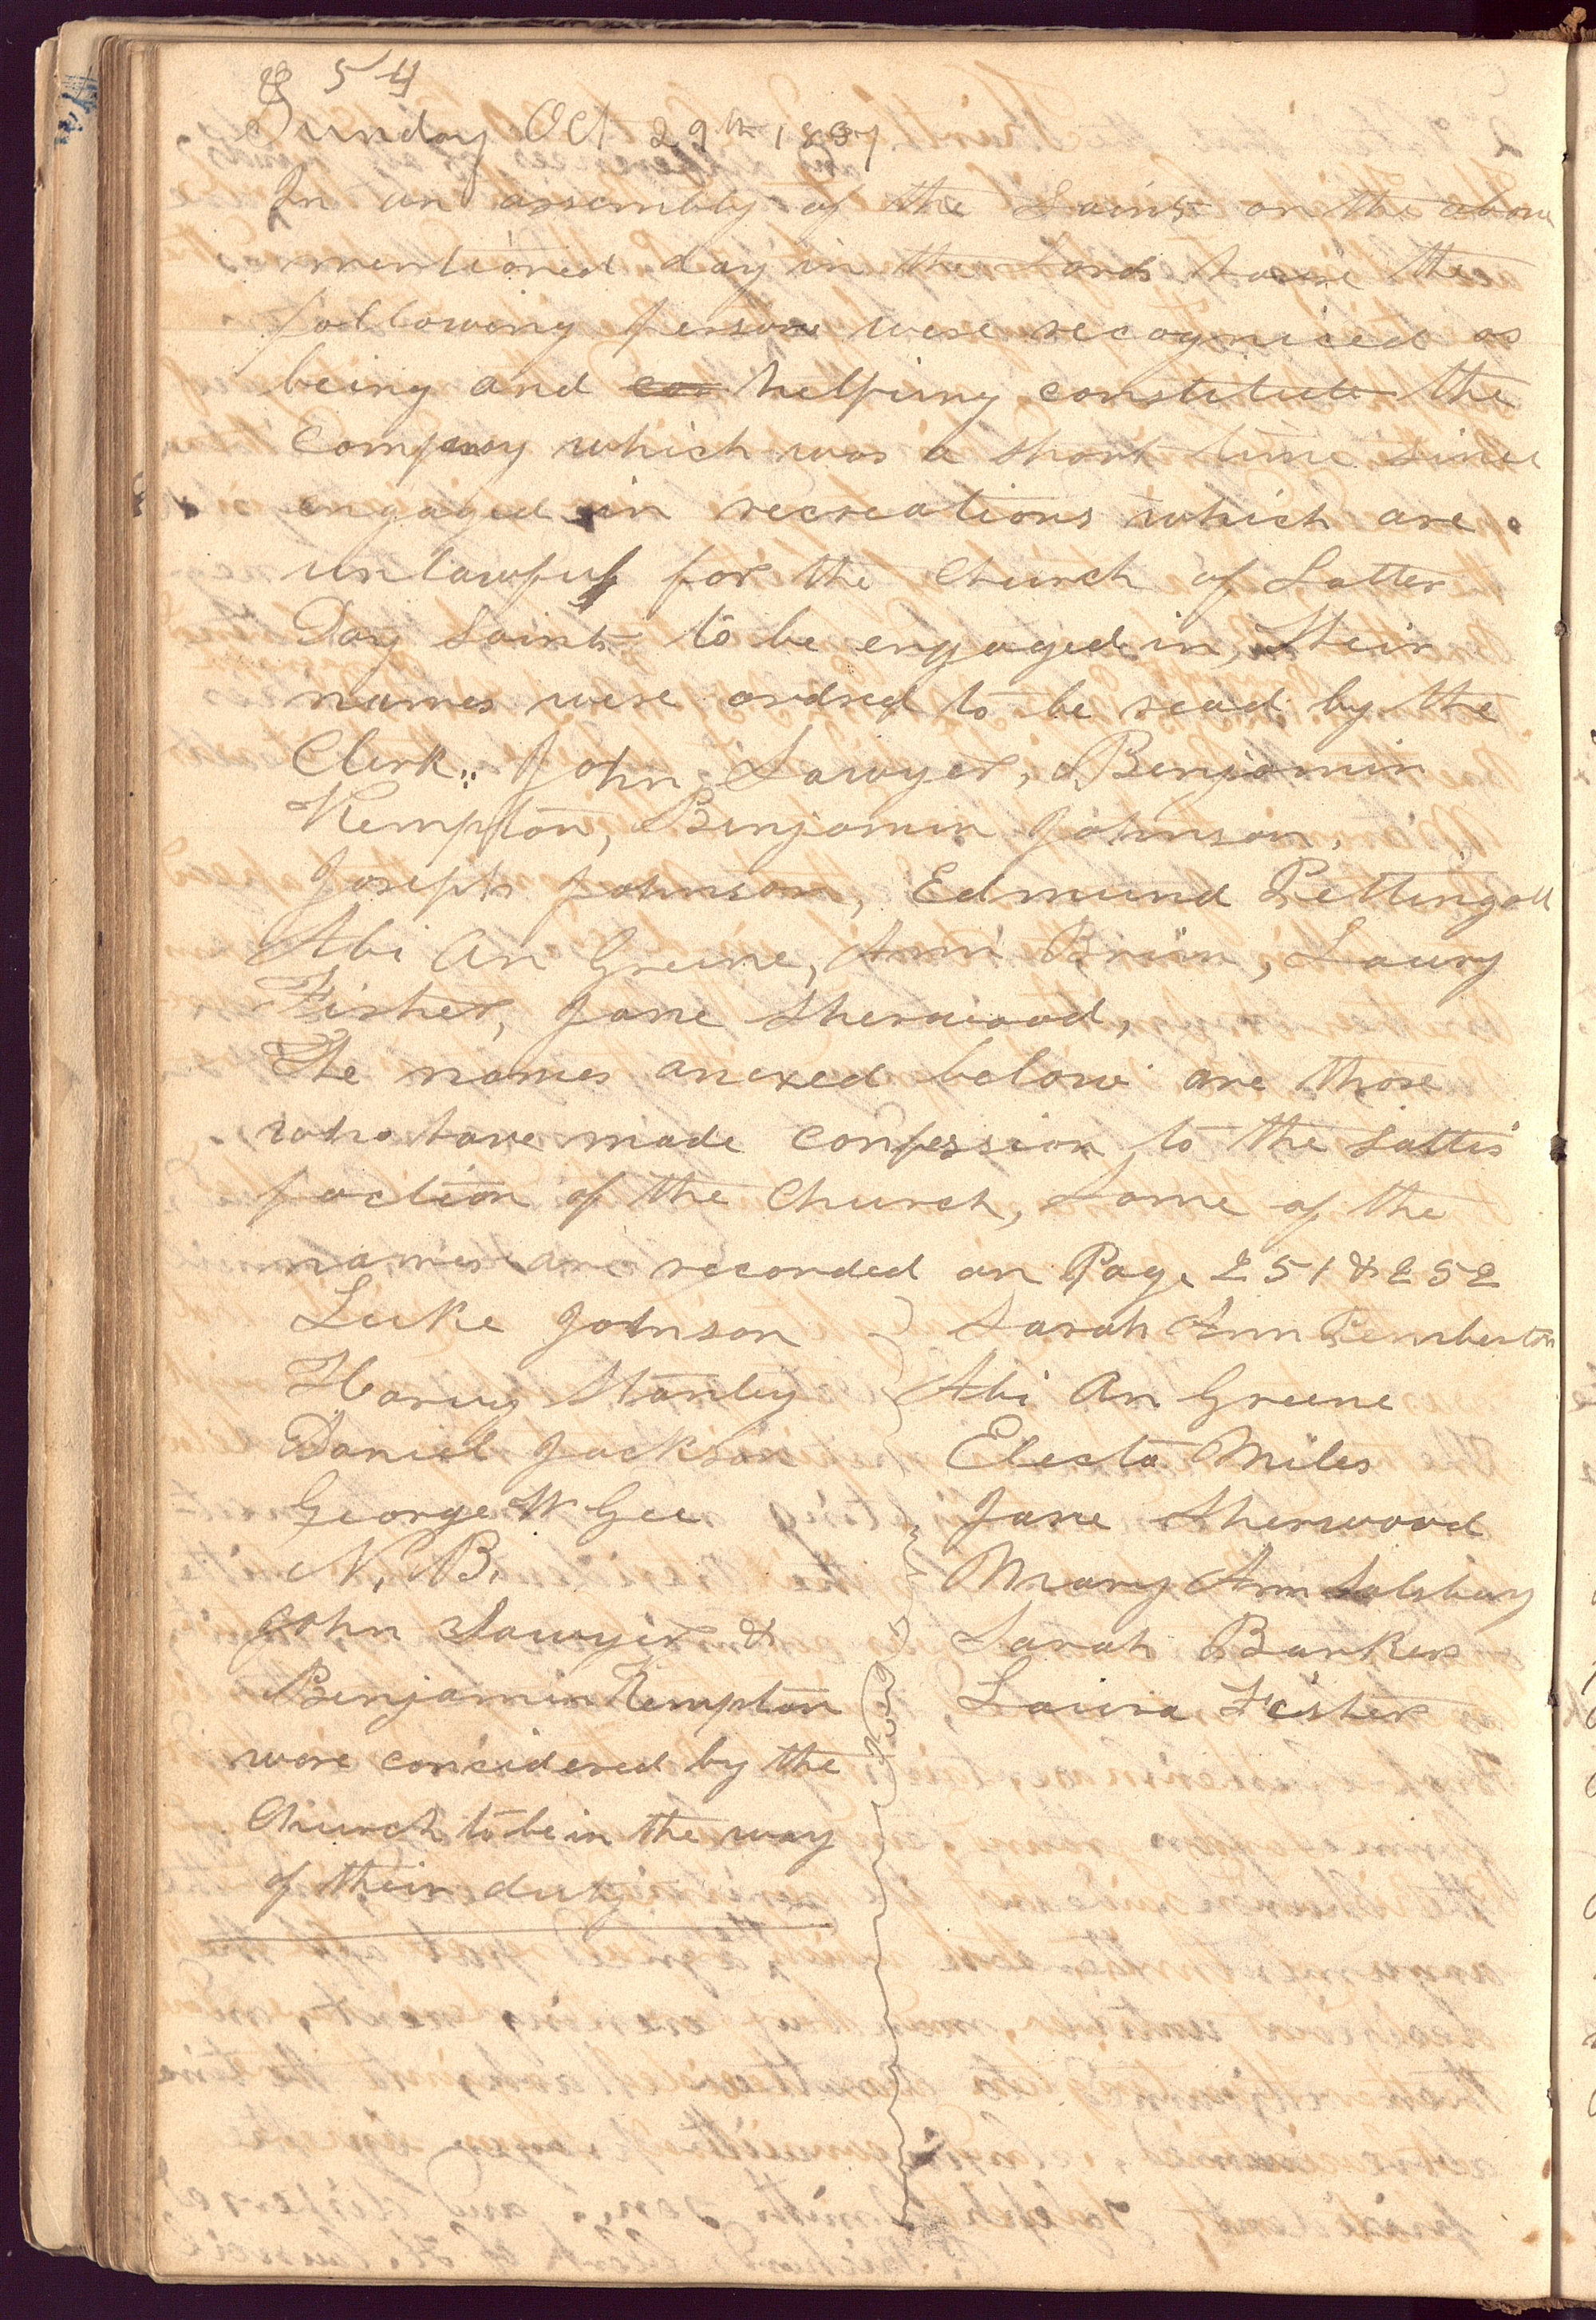 254
Sunday Oct 29th 1837
In an assembly of the Saints on the above
mentioned day in the Lords house the
following persons were recogniced as
being and con helping constitute the
company which was a short time since
engaged in recreations which are
unlawful for the Church of Latter
Day Saints to be engaged in, their
names were ordred to be read by the
Clerk,, John Sawyer, Benjamin
Kempton, Benjamin Johnson,
Joseph Johnson, Edmund Pettingall
Abi An Greene, Brim, Laury
Fisher, Jane Sherwood,
The names anexed below are those
who have made confession to the sattis
faction of the Church, Some of the
names are recorded on Page 251 & 252
Luke Johnson
Harvy Stanley
Daniel Jackson
George W Gee
N. B.
John Sawyer &
Benjamin Kempton
wore concidered by the
Church to be in the way
of their duty
Sarah Ann Pemberton
Abi An Greene
Electa Miles
Jane Sherwood
Mary Ann Salsbury
Sarah Barker
Laura Fisher